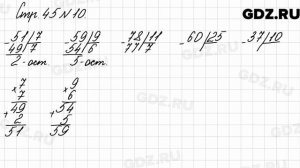 GDZ.RU
Стр. 45 №10.
-51|7 -59|9 -78|11 -60|25 -37|10
49|7 54|6 77|7
2-ост. 5-ост.
×7 ×9
7 6
+49 +54
2 5
51 59